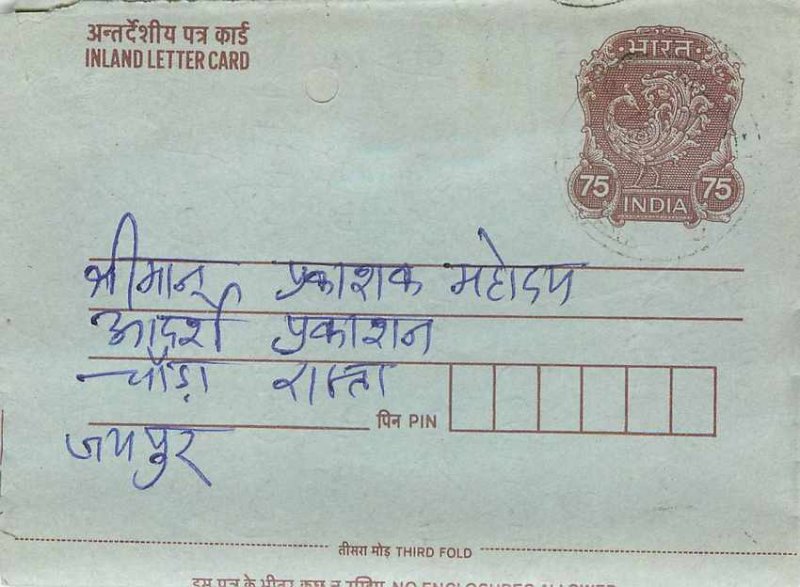 अन्तर्देशीय पत्र कार्ड
INLAND LETTER CARD
भारत
75 75
INDIA
श्रीमान् प्रकाशक महोदय
आदर्श प्रकाशन
चौड़ा रास्ता
पिन PIN
जयपुर
तीसरा मोड़ THIRD FOLD
इस पत्र के भीतर कुछ न रखिये NO ENCLOSURES ALLOWED